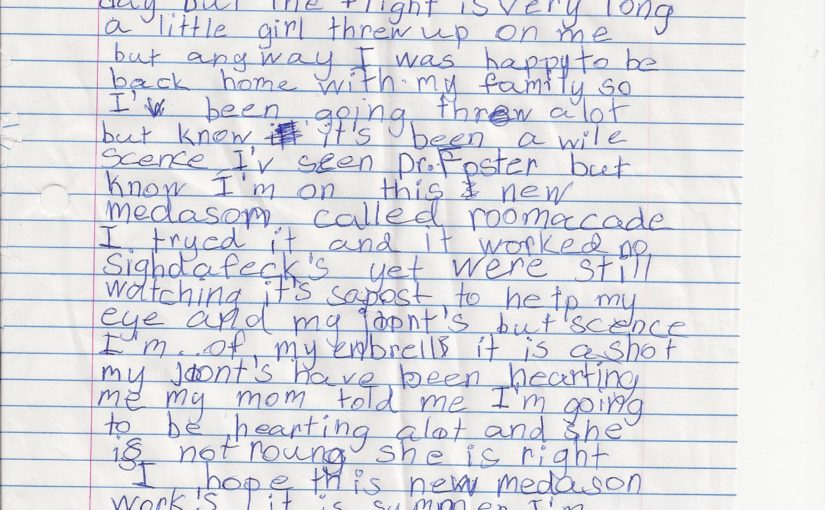 day but the flight is very long
a little girl threw up on me
but any way I was happy to be
back home with my family so
I'v been going threw alot
but know it's been a wile
scence I'v seen Dr. Foster but
know I'm on this new
medasom called roomacade
I tryed it and it worked no
sighdafeck's yet were still
watching it's sapost to help my
eye and my joont's but scence
I'm...of my enbrells it is a shot
my joont's have been hearting
me my mom told me I'm going
to be hearting alot and she
is not roung she is right
I hope this new medason
work's it is summer I'm